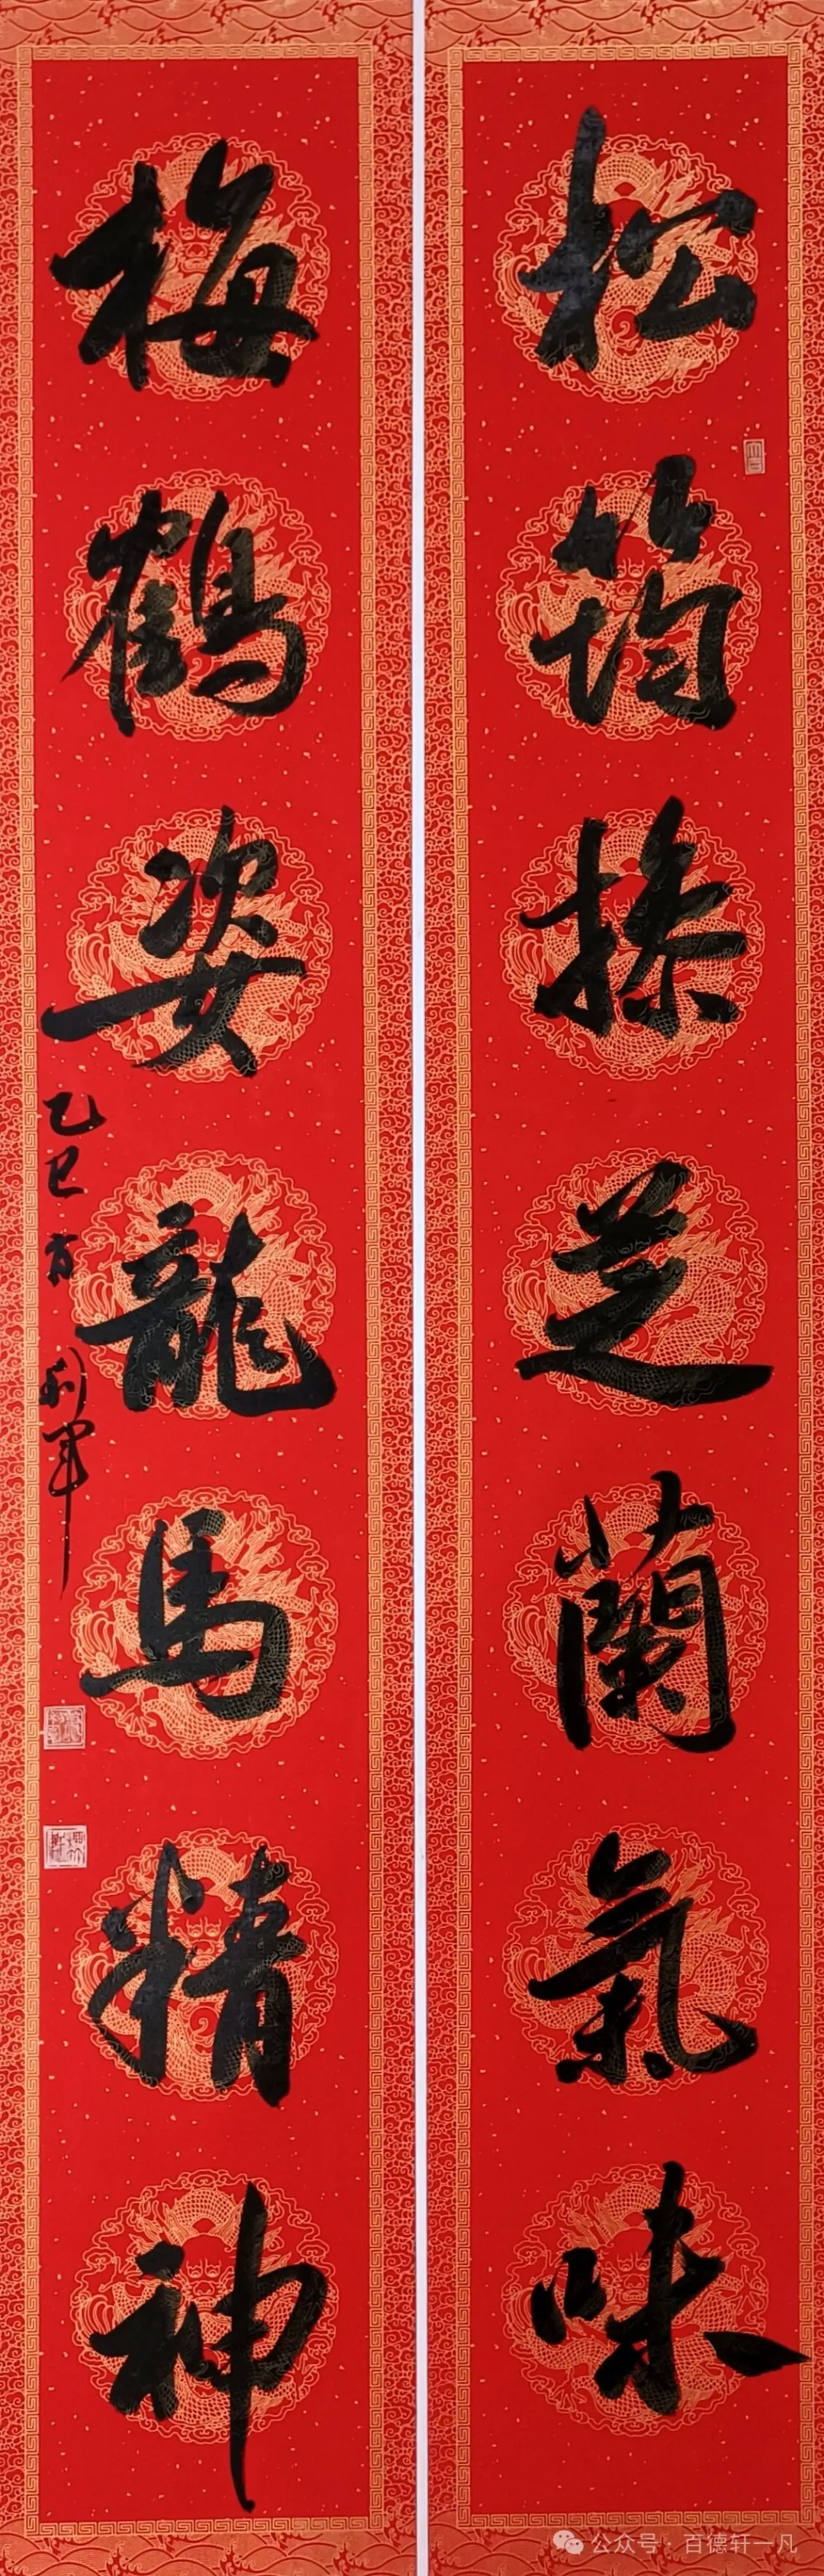 松筠操芝蘭氣味
梅鶴姿龍馬精神
乙巳
利軍
公众号·百德轩一凡